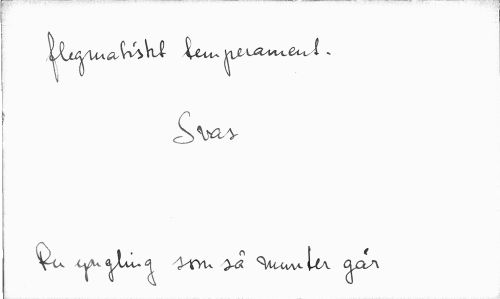 flegmatiskt temperament.
Svar
Du yngling som så munter går